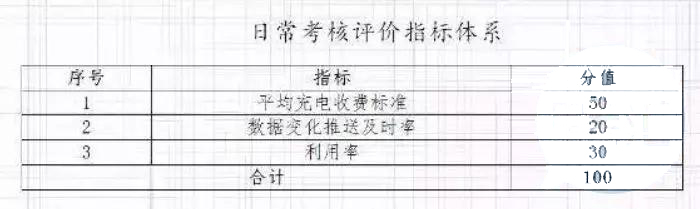 日常考核评价指标体系
序号 指标 分值
1 平均充电收费标准 50
2 数据变化推送及时率 20
3 利用率 30
合计 100